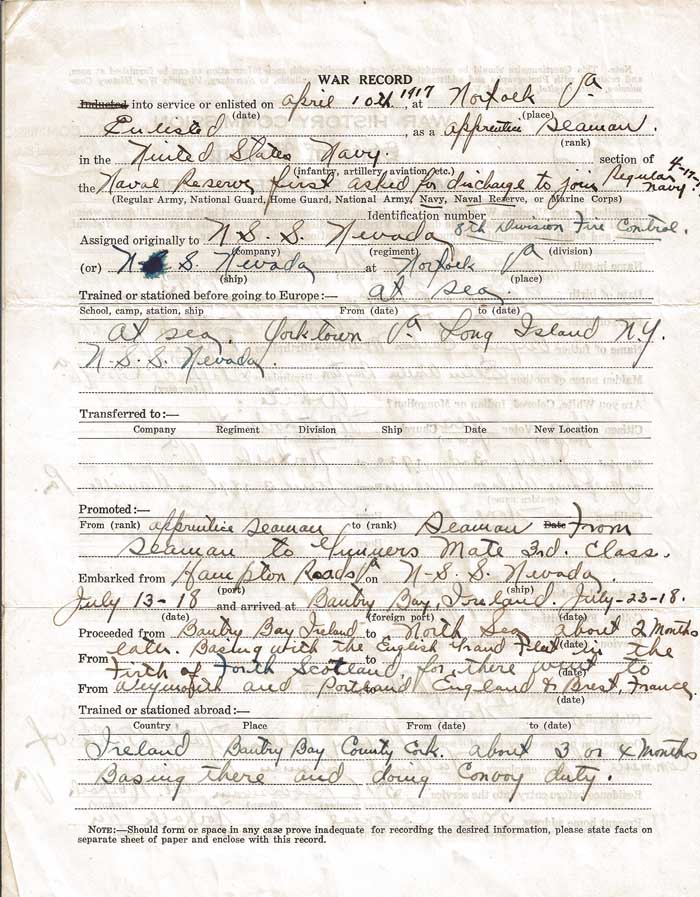 WAR RECORD
Inducted into service or enlisted on April 10th, 1917, at Norfolk Va
(date) (place)
Enlisted, as a apprentice Seaman.
(rank)
in the United States Navy. section of
(infantry, artillery, aviation, etc.)
the Naval Reserve, first asked for discharge to join Regular Navy.
(Regular Army, National Guard, Home Guard, National Army, Navy, Naval Reserve, or Marine Corps)
Identification number
Assigned originally to U.S.S. Nevada 8th Division Fire Control.
(company) (regiment) (division)
(or) U.S.S. Nevada at Norfolk Va
(ship) (place)
Trained or stationed before going to Europe:— at sea
School, camp, station, ship From (date) to (date)
At sea. Yorktown Va Long Island N.Y.
U.S.S. Nevada.
Transferred to:—
Company Regiment Division Ship Date New Location
Promoted:—
From (rank) apprentice Seaman to (rank) Seaman Date From
Seaman to Gunners Mate 3rd. Class.
Embarked from Hampton Roads Va on U.S.S. Nevada.
(port) (ship)
July 13-18 and arrived at Bantry Bay, Ireland. July-23-18.
(date) (foreign port) (date)
Proceeded from Bantry Bay Ireland to North Sea about 2 Months
(date)
From later. Basing with the English Grand Fleet in the
to
Firth of Forth Scotland, for there went to
(date)
From Weymouth and Portland England & Brest, France
to
(date)
Trained or stationed abroad:—
Country Place From (date) to (date)
Ireland Bantry Bay County Cork. about 3 or 4 Months
Basing there and doing Convoy duty.
NOTE:—Should form or space in any case prove inadequate for recording the desired information, please state facts on
separate sheet of paper and enclose with this record.